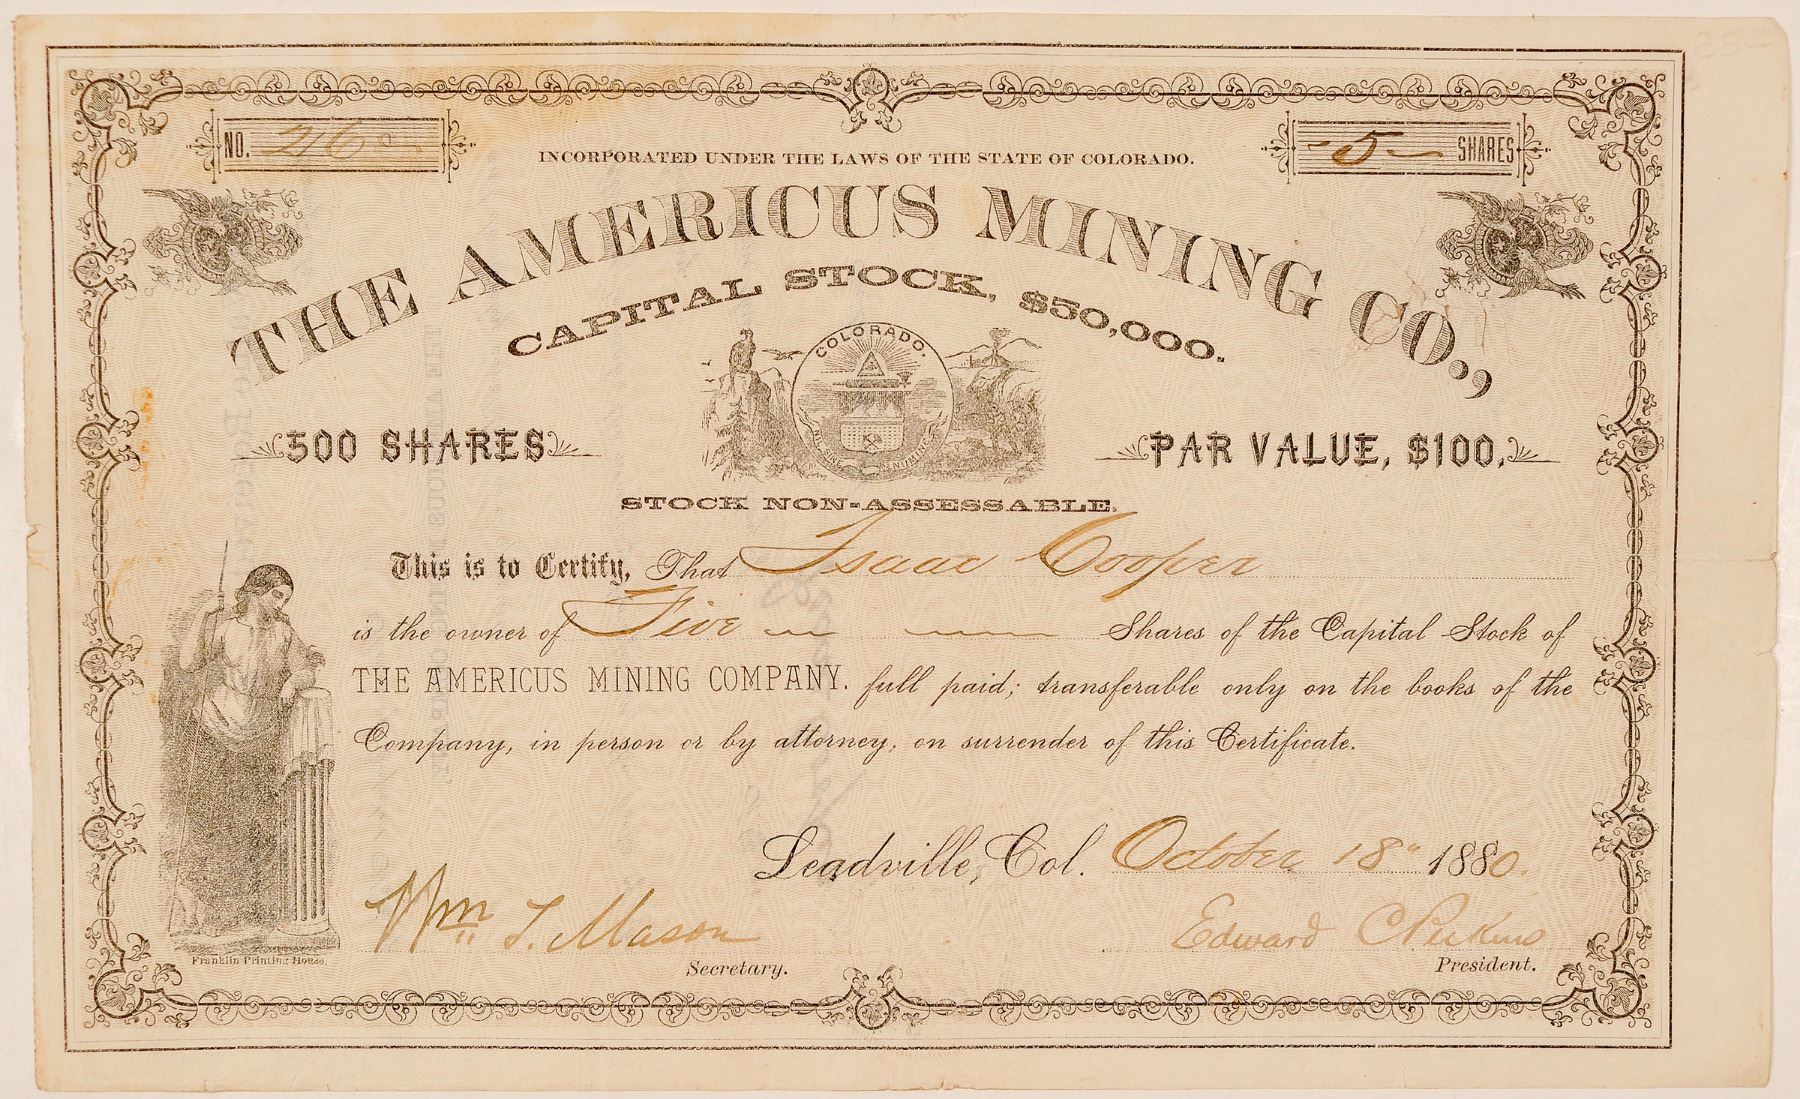 NO. 26
5 SHARES
INCORPORATED UNDER THE LAWS OF THE STATE OF COLORADO.
THE AMERICUS MINING CO.,
CAPITAL STOCK, $50,000.
COLORADO.
500 SHARES
PAR VALUE, $100.
STOCK NON-ASSESSABLE.
This is to Certify, That Isaac Cooper
is the owner of Five Shares of the Capital Stock of
THE AMERICUS MINING COMPANY. full paid; transferable only on the books of the
Company, in person or by attorney, on surrender of this Certificate.
Leadville, Col. October 18" 1880.
Wm T. Mason
Secretary.
Edward C Perkins
President.
Franklin Printing House.